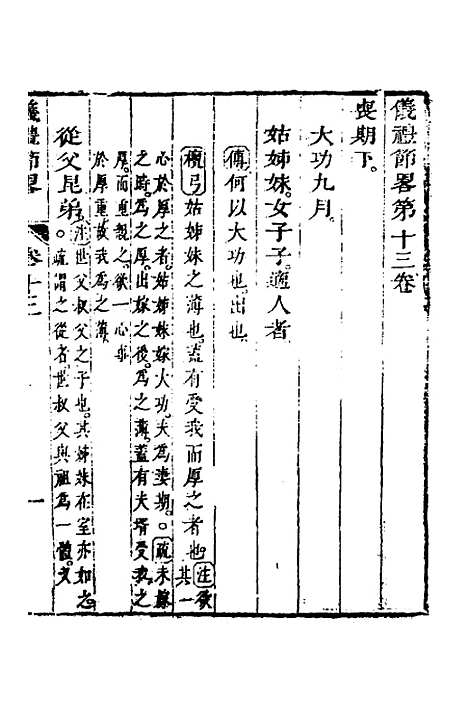 儀禮節畧第十三卷
喪期下。
大功九月。
姑姊妹。女子子。適人者
傳何以大功也。出也
檀弓姑姊妹之薄也。蓋有受我而厚之者也注欲其一
心於厚之者。姑姊妹嫁大功。夫爲妻期。○疏未嫁
之時。爲之厚。出嫁之後。爲之薄。蓋有夫壻受我之
厚。而重親之。欲一心事
於厚重。故我爲之薄。
從父昆弟。注世父叔父之子也。其姊妹在室亦如之
○疏謂之從者。世叔父與祖爲一體。又
儀禮節畧
卷十三
一